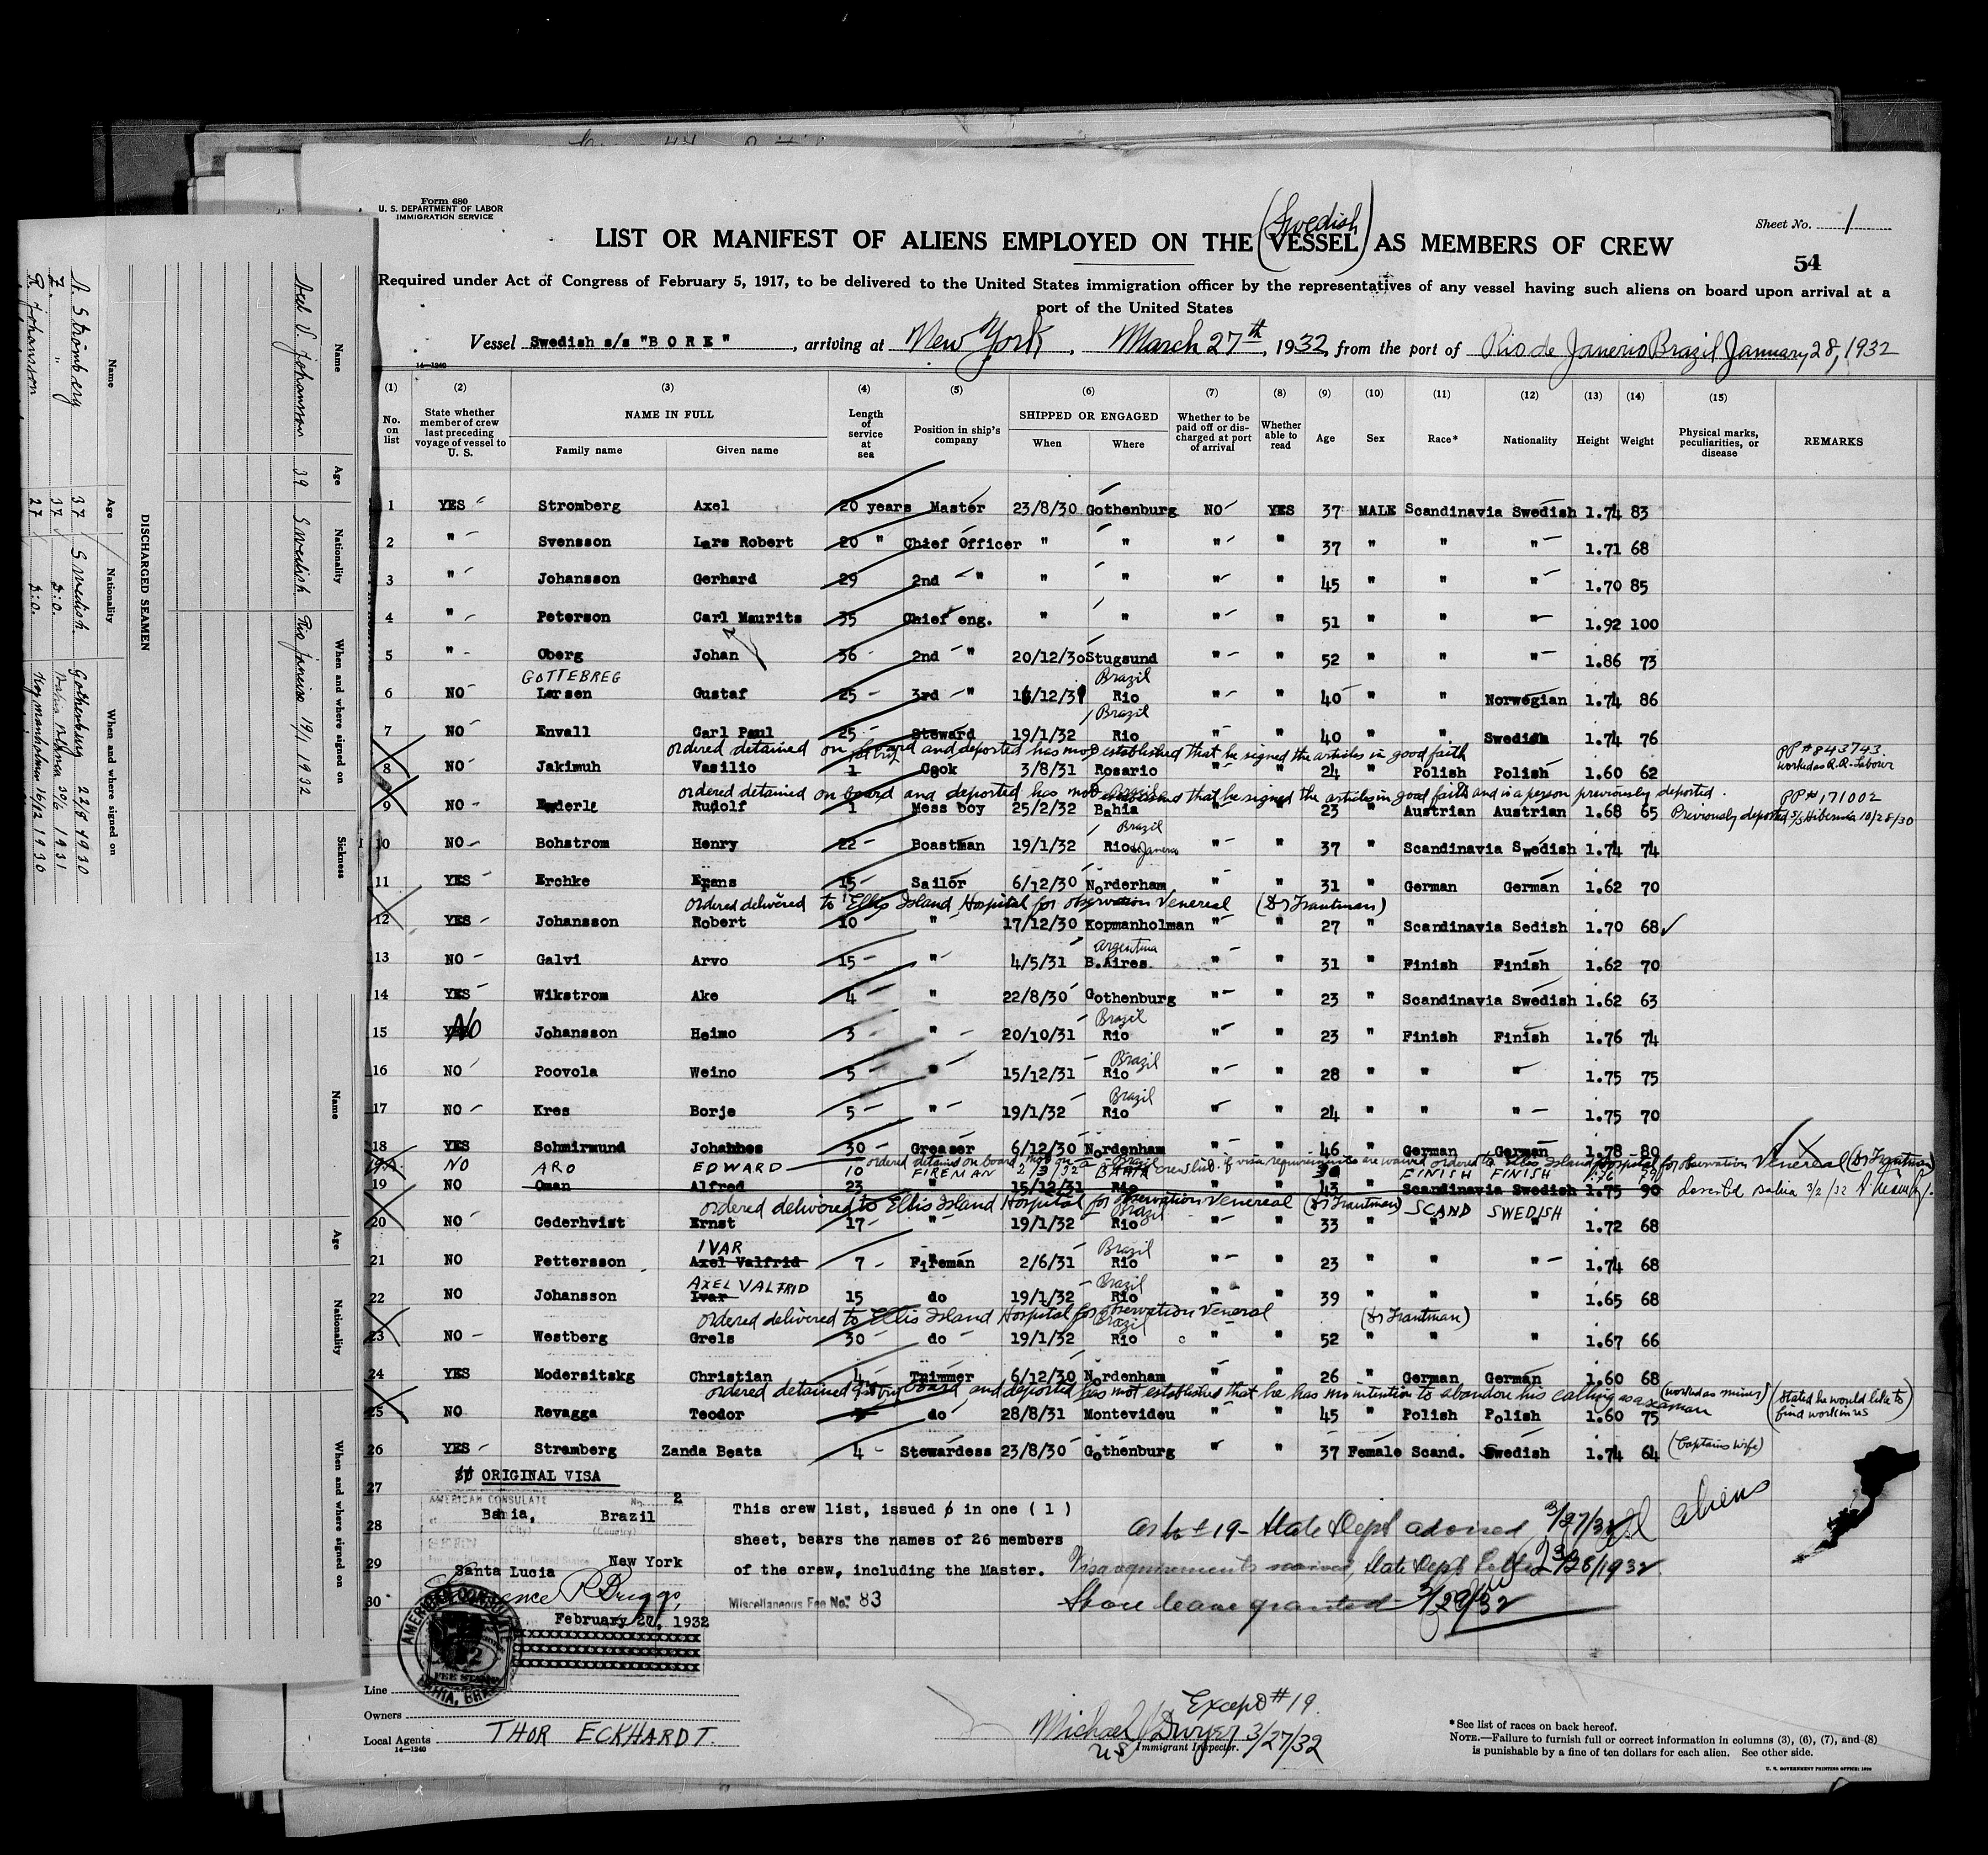 Form 680
U. S. DEPARTMENT OF LABOR
IMMIGRATION SERVICE
Sheet No. 1
(Swedish)
LIST OR MANIFEST OF ALIENS EMPLOYED ON THE VESSEL AS MEMBERS OF CREW
54
Required under Act of Congress of February 5, 1917, to be delivered to the United States immigration officer by the representatives of any vessel having such aliens on board upon arrival at a
port of the United States
Vessel Swedish s/s "BORE", arriving at New York, March 27th, 1932, from the port of Rio de Janerio Brazil January 28, 1932
14—1240
(1) (2) (3) (4) (5) (6) (7) (8) (9) (10) (11) (12) (13) (14) (15)
No. on list
State whether member of crew last preceding voyage of vessel to U. S.
NAME IN FULL
Family name Given name
Length of service at sea
Position in ship's company
SHIPPED OR ENGAGED
When Where
Whether to be paid off or discharged at port of arrival
Whether able to read
Age Sex Race* Nationality Height Weight
Physical marks, peculiarities, or disease
REMARKS
1 YES Stromberg Axel 20 years Master 23/8/30 Gothenburg NO YES 37 MALE Scandinavia Swedish 1.74 83
2 " Svensson Lars Robert 20 " Chief Officer " " " " 37 " " " 1.71 68
3 " Johansson Gerhard 29 2nd " " " " " 45 " " " 1.70 85
4 " Peterson Carl Maurits 35 Chief eng. " " " " 51 " " " 1.92 100
5 " Oberg Johan 36 2nd " 20/12/30 Stugsund " " 52 " " " 1.86 73
GOTTEBREG Brazil
6 NO Larsen Gustaf 25 3rd " /12/31 Rio " " 40 " " Norwegian 1.74 86
Brazil
7 NO Envall Carl Paul 25 Steward 19/1/32 Rio " " 40 " " Swedish 1.74 76
ordered detained on board and deported has not established that he signed the articles in good faith
PP # 843743.
worked as R.R. Labour
8 NO Jakimuh Vasilio 1 Cook 3/8/31 Rosario " " 24 " Polish Polish 1.60 62
ordered detained on board and deported has not established that he signed the articles in good faith and is a person previously deported.
PP# 171002
9 NO Enderle Rudolf 1 Mess boy 25/2/32 Bahia " " 23 " Austrian Austrian 1.68 65 Previously deported 10/28/30
Brazil
10 NO Bohstrom Henry 22 Boastman 19/1/32 Rio de Janerio " " 37 " Scandinavia Swedish 1.74 74
11 YES Erchke Frans 15 Sailor 6/12/30 Norderham " " 31 " German German 1.62 70
ordered delivered to Ellis Island Hospital for observation Venereal (Dr Trautman)
12 YES Johansson Robert 10 " 17/12/30 Kopmanholman " " 27 " Scandinavia Sedish 1.70 68
Argentina
13 NO Galvi Arvo 15 " 4/5/31 B.Aires. " " 31 " Finish Finish 1.62 70
14 YES Wikstrom Ake 4 " 22/8/30 Gothenburg " " 23 " Scandinavia Swedish 1.62 63
Brazil
15 NO Johansson Heimo 3 " 20/10/31 Rio " " 23 " Finish Finish 1.76 74
Brazil
16 NO Poovola Weino 5 " 15/12/31 Rio " " 28 " " " 1.75 75
Brazil
17 NO Kres Borje 5 " 19/1/32 Rio " " 24 " " " 1.75 70
18 YES Schmirmund Johannes 30 Greaser 6/12/30 Nordenham " " 46 " German German 1.78 80
ordered detained on board not on a crew list. if visa requirements are waived ordered to Ellis Island Hospital for observation Venereal (Dr Trautman)
19A NO ARO EDWARD 10 FIREMAN 2/3/32 BAHIA FINISH FINISH
19 NO Oman Alfred 23 " 15/12/31 Rio " " 43 " Scandinavia Swedish 1.75 90 Deserted Bahia 3/2/32
ordered delivered to Ellis Island Hospital for observation Venereal (Dr Trautman) SCAND SWEDISH
Brazil
20 NO Cederhvist Ernst 17 " 19/1/32 Rio " " 33 " " " 1.72 68
IVAR Brazil
21 NO Pettersson Axel Valfrid 7 Fireman 2/6/31 Rio " " 23 " " " 1.74 68
AXEL VALFRID Brazil
22 NO Johansson Ivar 15 do 19/1/32 Rio " " 39 " " " 1.65 68
ordered delivered to Ellis Island Hospital for observation Veneral (Dr Trautman)
Brazil
23 NO Westberg Grels 30 do 19/1/32 Rio " " 52 " " " 1.67 66
24 YES Modersitskg Christian 4 Trimmer 6/12/30 Nordenham " " 26 " German German 1.60 68
ordered detained on board and deported has not established that he has no intention to abandon his calling as a seaman (worked as miner) (stated he would like to find work in US
25 NO Revagga Teodor do 28/8/31 Montevideu " " 45 " Polish Polish 1.60 75
26 YES Stromberg Zanda Beata 4 Stewardess 23/8/30 Gothenburg " " 37 Female Scand. Swedish 1.74 64 (Captains wife)
ORIGINAL VISA
27
28
29
30
AMERICAN CONSULATE No. 2
at Bahia, Brazil
(City) (Country)
SEEN
For the journey to the United States New York
Santa Lucia
P Briggs
February 20, 1932
AMERICAN CONSULATE
FEE STAMP
BAHIA, BRAZIL
This crew list, issued in one ( 1 )
sheet, bears the names of 26 members
of the crew, including the Master.
Miscellaneous Fee No. 83
as to # 19 - State Dept advised 3/27/32
all aliens
Visa requirements waived, State Dept letter 3/28/1932
Shore leave granted 3/29/32
Line
Owners
Local Agents THOR ECKHARDT.
14—1240
Except #19.
Michael J Dwyer 3/27/32
US Immigrant Inspector.
*See list of races on back hereof.
NOTE.—Failure to furnish full or correct information in columns (3), (6), (7), and (8)
is punishable by a fine of ten dollars for each alien. See other side.
U. S. GOVERNMENT PRINTING OFFICE: 1930
DISCHARGED SEAMEN
Name Age Nationality When and where signed on
A. Strömberg 37 Swedish. Gothenburg 22/8 1930
Z. " 37 d:o. 30/6 1931
R. Johansson 27 d:o. Kopmanholmen 16/12 1930
Name Age Nationality When and where signed on Sickness
Axel V. Johansson 39 Swedish Rio Janeiro 19/1 1932
Name Age Nationality When and where signed on